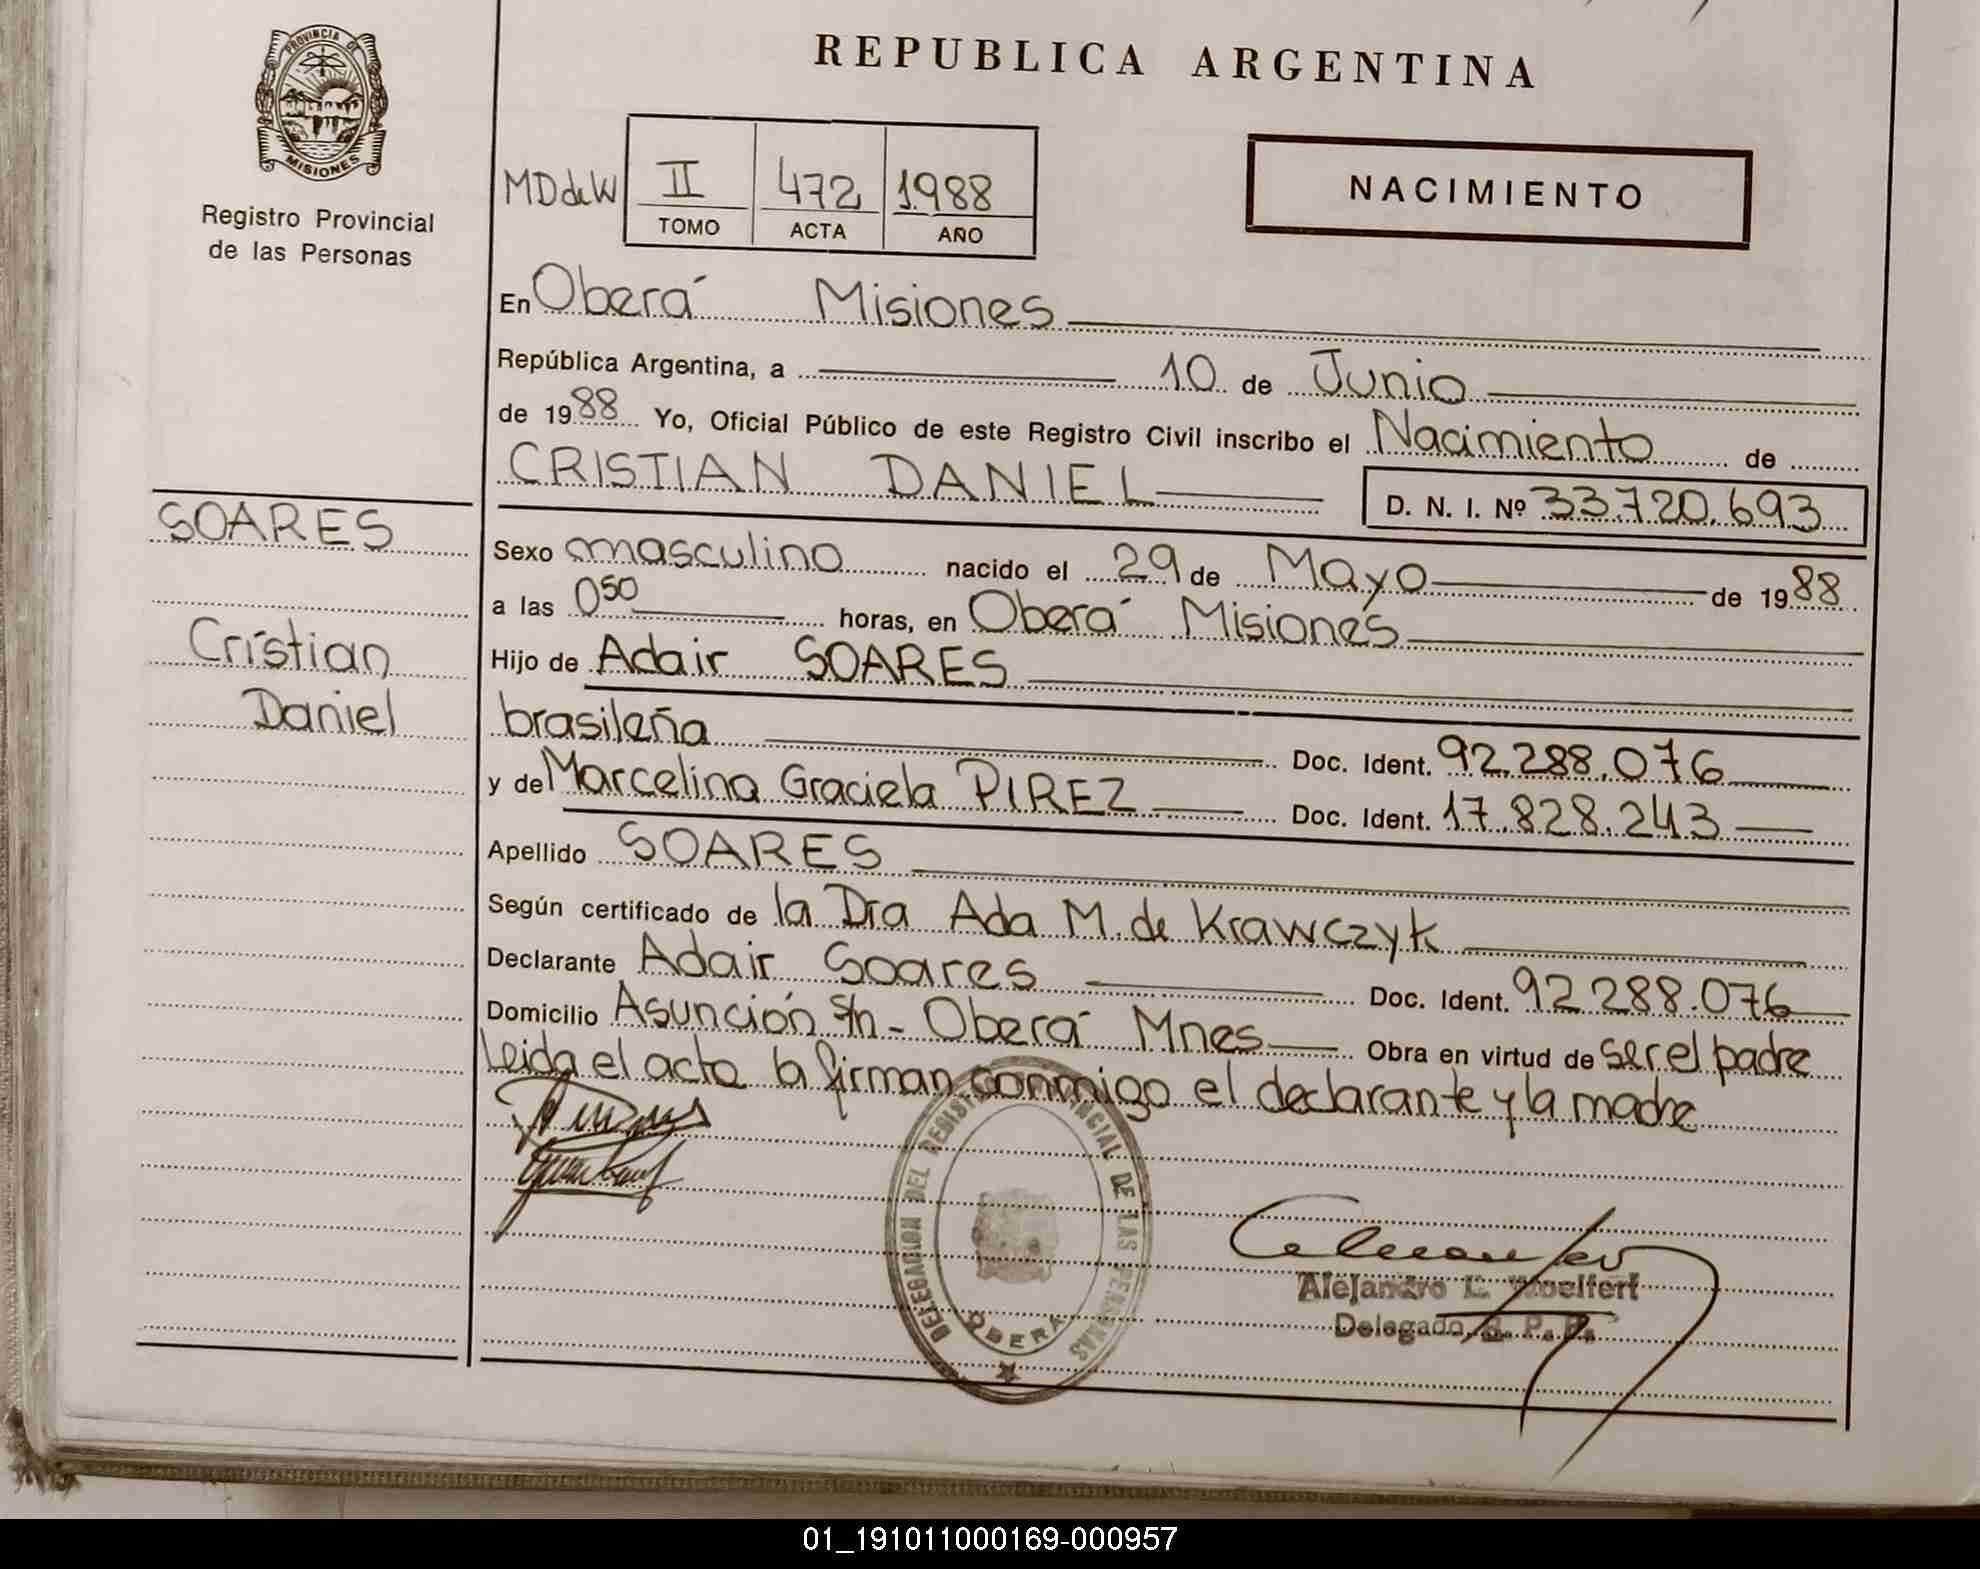 PROVINCIA DE
MISIONES
Registro Provincial
de las Personas
SOARES
Cristian
Daniel
REPUBLICA ARGENTINA
MDdeW II 472 1.988
TOMO ACTA AÑO
NACIMIENTO
En Oberá Misiones
República Argentina, a 10 de Junio
de 1988 Yo, Oficial Público de este Registro Civil inscribo el Nacimiento de
CRISTIAN DANIEL D. N. I. Nº 33.720.693
Sexo masculino nacido el 29 de Mayo de 1988
a las 0 50 horas, en Oberá Misiones
Hijo de Adair SOARES
brasileña Doc. Ident. 92.288.076
y de Marcelina Graciela PIREZ Doc. Ident. 17.828.243
Apellido SOARES
Según certificado de la Dra Ada M. de Krawczyk
Declarante Adair Soares Doc. Ident. 92 288.076
Domicilio Asunción s/n - Oberá Mnes Obra en virtud de ser el padre
Leida el acta la firman conmigo el declarante y la madre
DELEGACION DEL REGISTRO PROVINCIAL DE LAS PERSONAS
OBERA
Alejandro Woelfert
Delegado R. P. P.
01_191011000169-000957